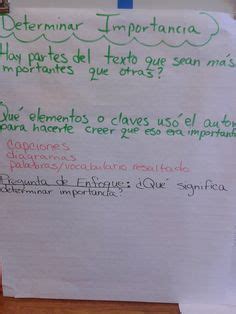 Determinar Importancia
Hay partes del texto que sean más
importantes que otras?
Qué elementos o claves usó el autor
para hacerte creer que eso era importante
capciones
diagramas
palabras/vocabulario resaltado
Pregunta de Enfoque: ¿Qué significa
determinar importancia?